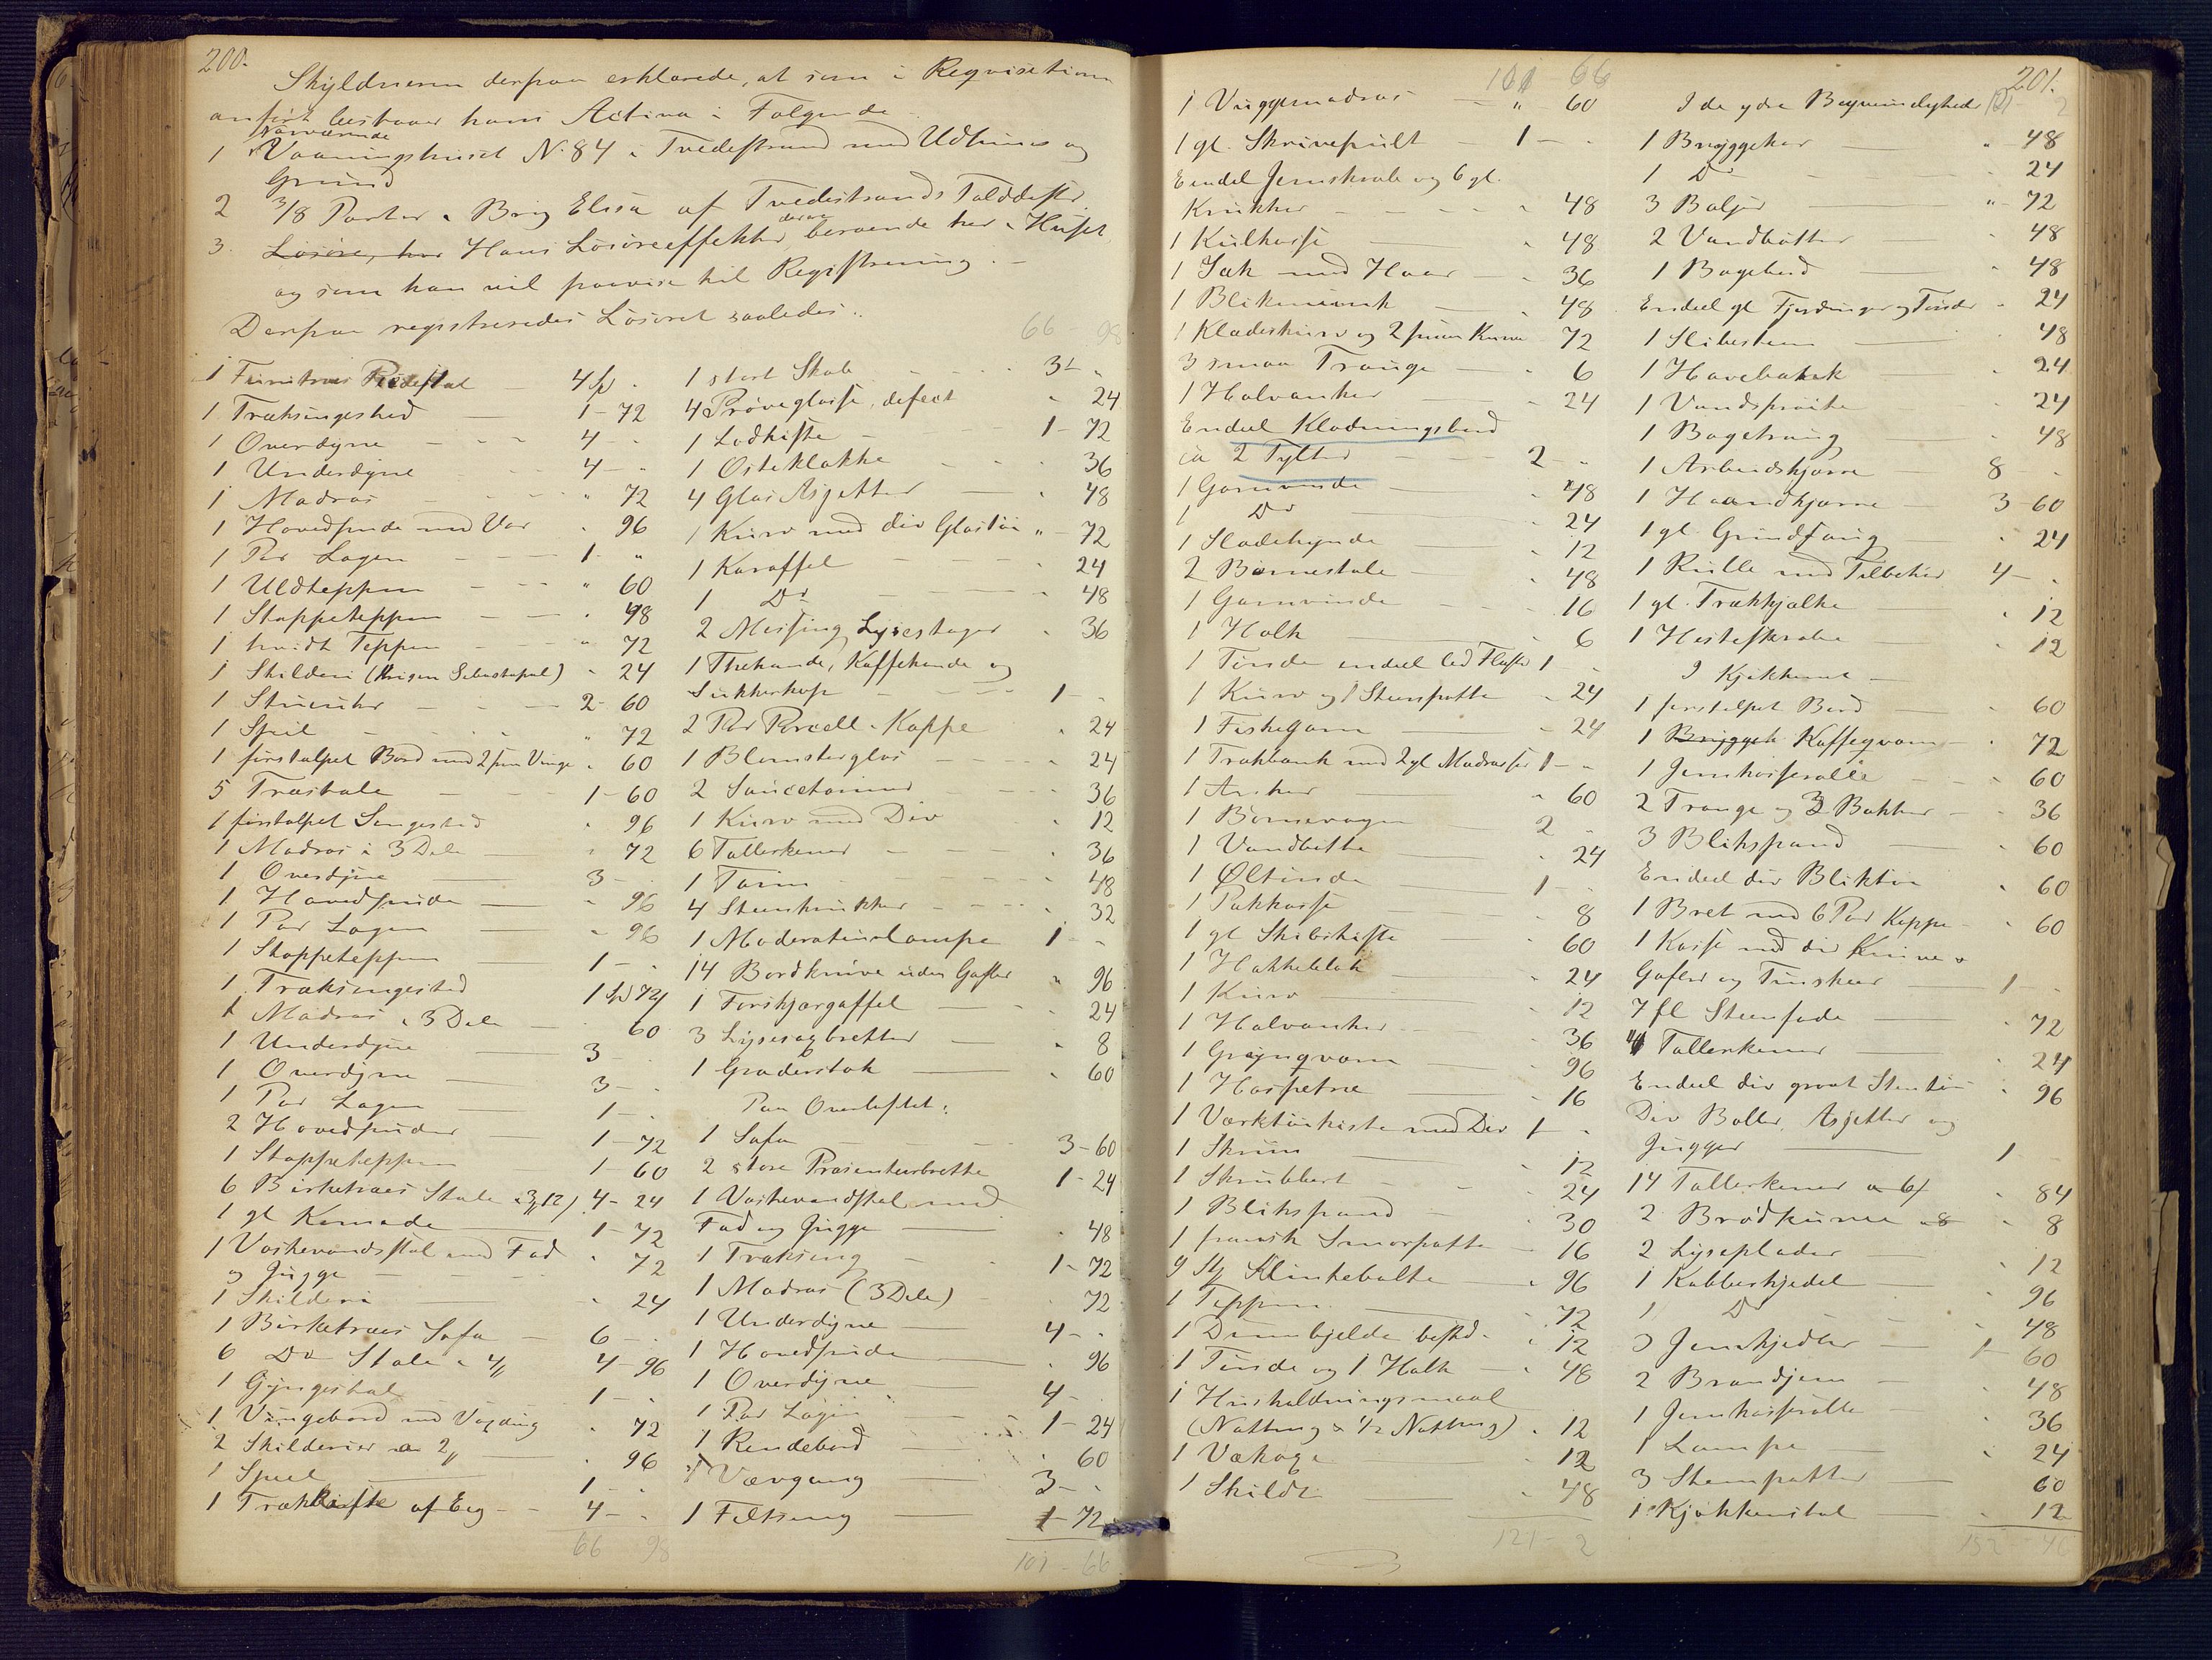 200.
Skyldneren derpaa erklærede, at som i Reqvisitionen
anført bestaaer hans Activa i Følgende
nærværende
1 Vaaningshuset N. 84 i Tvedestrand med Udhuus og
Grund
2 3/8 Parter i Brig Elisa af Tvedestrands Tolddistr.
3. Løsøre, hans Løsøreeffekter, beroende her i Huset,
og som han vil paavise til Registrering. -
Derpaa registreredes Løsøret saaledes:
66 98
1 Furutræes Piedestal 4 Sp -
1 Træksengested 1 - 72
1 Overdyne 4 - -
1 Underdyne 4 - -
1 Madras " 72
1 Hovedpude med Var - 96
1 Par Lagen 1 - "
1 Uldteppen " 60
1 Stoppeteppen - 48
1 hvidt Teppen " 72
1 Skilderi (Krigen Sebastopol) - 24
1 Stueuhr 2 - 60
1 Speil " 72
1 furutalpet Bord med 2 smaa Vinge - 60
5 Træstole 1 - 60
1 furutalpet Sengested - 96
1 Madras i 3 Dele - 72
1 Overdyne 3 - -
1 Hovedpude - 96
1 Par Lagen - 96
1 Stoppeteppen 1 - -
1 Træksengested 1 Sp 72
1 Madras i 3 Dele 60
1 Underdyne 3 -
1 Overdyne 3 - -
1 Par Lagen 1 - -
2 Hovedpuder 1 - 72
1 Stoppeteppen 1 - 60
6 Birketræes Stole 4 - 24
1 gl Komode 1 - 72
1 Vaskevandsstol med Fad
og Jugge - 72
1 Skilderi - 24
1 Birketræes Sofa 6 - -
6 Do Stole 4 - 96
1 Gyngestol 1 -
1 Vingebord med Voxdug - 72
2 Skilderier a 2 - 96
1 Speil 1 - -
1 Trækkiste af Eeg 4 - -
66 98
1 stort Skab 3 - -
4 Prøveglasse, defect - 24
1 Lodkiste 1 - 72
1 Osteklokke - 36
4 Glas Asjetter - 48
1 Kurv med div Glastøi " - 72
1 Karaffel - 24
1 Do - 48
2 Messing Lysestager - 36
1 Thekande, Kaffekande og
Sukkerkop 1 - -
2 Par Porcell. Koppe - 24
1 Blomsterglas - 24
2 Sauceterriner - 36
1 Kurv med Div - 12
6 Tallerkener - 36
1 Terrin - 48
4 Steenkrukker - 32
1 Moderateurlampe 1 - -
14 Bordknive uden Gafler " 96
1 Forskjærgaffel - 24
3 Lysesaxbretter - 8
1 Graderstok - 60
Paa Overloftet:
1 Sofa 3 - 60
2 store Præsenteerbrette 1 - 24
1 Vaskevandsstol med
Fad og Jugge - 48
1 Trækseng 1 - 72
1 Madras (3 Dele) - 72
1 Underdyne 4 - -
1 Hovedpude - 96
1 Overdyne 4 -
1 Par Lagen 1 - 24
1 Rendebord - 60
1 Vævgang 3 - -
1 Feltseng 1 - 72
101 - 66
101 - 66
1 Vuggemadras " 60
1 gl. Skrivepult 1 - -
Endel Jernskrab og 6 gl.
Krukker - 48
1 Kulkasse - 48
1 Sæk med Haar - 36
1 Blikmunk - 48
1 Klædeskurv og 2 smaa Kurve 72
3 smaa Trauge - 6
1 Halvanker - 24
Endeel Klædningsbord
ca 2 Tylter 2 - -
1 Garnvinde - 48
1 Do 24
1 Slædehynde - 12
2 Børnestole - 48
1 Garnvinde - 16
1 Holk - 6
1 Tønde endeel led Flasker 1 - -
1 Kurv og 1 Steenpotte - 24
1 Fiskegarn - 24
1 Trækbænk med 2 gl Madrasser 1 - -
1 Anker - 60
1 Børnevogn 2 -
1 Vandbøtte - 24
1 Øltønde 1 - -
1 Pakkasse - 8
1 gl Skibskiste - 60
1 Hakkeblok - 24
1 Kurv 12
1 Halvanker - 36
1 Grynqværn - 96
1 Haspetræ - 16
1 Værktøikiste med Div 1 -
1 Skrin - 12
1 Skrubbert - 24
1 Blikspand - 30
1 fransk Smørpotte - 16
9 Stk Klinkebolte - 96
1 Teppen 72
1 Dumbjelde besked. - 12
1 Tønde og 1 Holk - 48
1 Huusholdningsmaal
(Nattung & 1/2 Nattung) - 12
1 Vækage 12
1 Skildt - 48
121 - 2
201.
I de ydre Beqvemmeligheder 121 - 2
1 Bryggekar - 48
1 Do 24
3 Baljer " - 72
2 Vandbøtter - 48
1 Bagebord - 48
Endeel gl Fjerdinger og Tønder - 24
1 Slibesteen 48
1 Havehakk - 24
1 Vandsprøite - 24
1 Bagetraug - 48
1 Arbeidskjærre 8 - -
1 Haandkjærre 3 - 60
1 gl. Grindfang - 24
1 Rulle med Tilbehør 4 - -
1 gl. Trækkjælke - 12
1 Hesteskrabe - 12
I Kjøkkenet
1 furutalpet Bord - 60
1 Bryggek Kaffeqværn - 72
1 Jernkasserolle - 60
2 Trauge og 3 Bakker - 36
3 Blikspand - 60
Endeel div Bliktøi - 60
1 Bret med 6 Par Koppe - 60
1 Kasse med div Knive
Gafler og Tinskeer 1 - -
7 fl Steenfade - 72
4 Tallerkener - 24
Endeel div grovt Steentøi - 96
Div Boller, Asjetter og
Jugger 1 -
14 Tallerkener a 6 - 84
2 Brødkurve - 8
2 Lyseplader - 12
1 Kobberkjedel - 96
1 Do - 48
3 Jernkjedler 1 - 60
2 Brandjern - 48
1 Jernkasserolle - 36
1 Lampe - 24
3 Steenpotter 60
1 Kjøkkenstol - 12
152 - 46